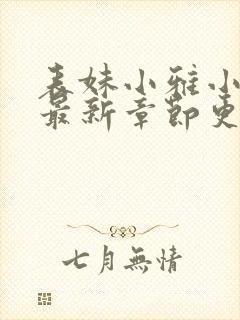 表妹小雅小
最新章節更
七月無情